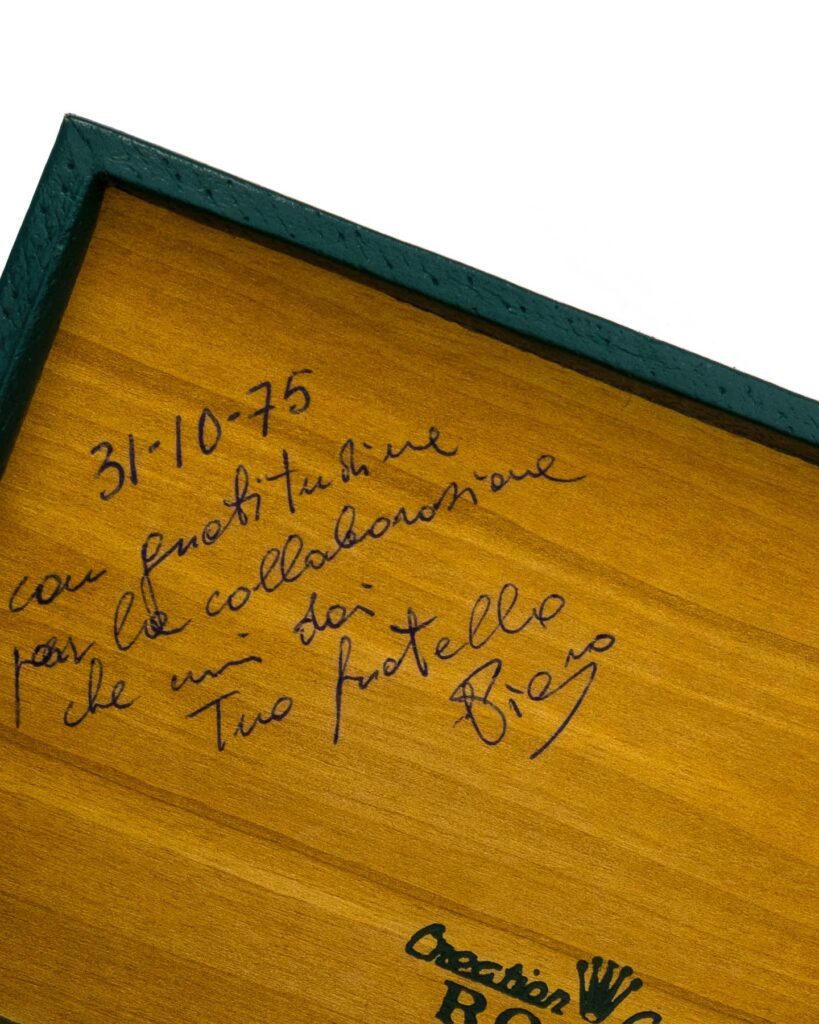 31-10-75
con gratitudine
per la collaborazione
che mi dai
Tuo fratello
Biagio
Creation
RO